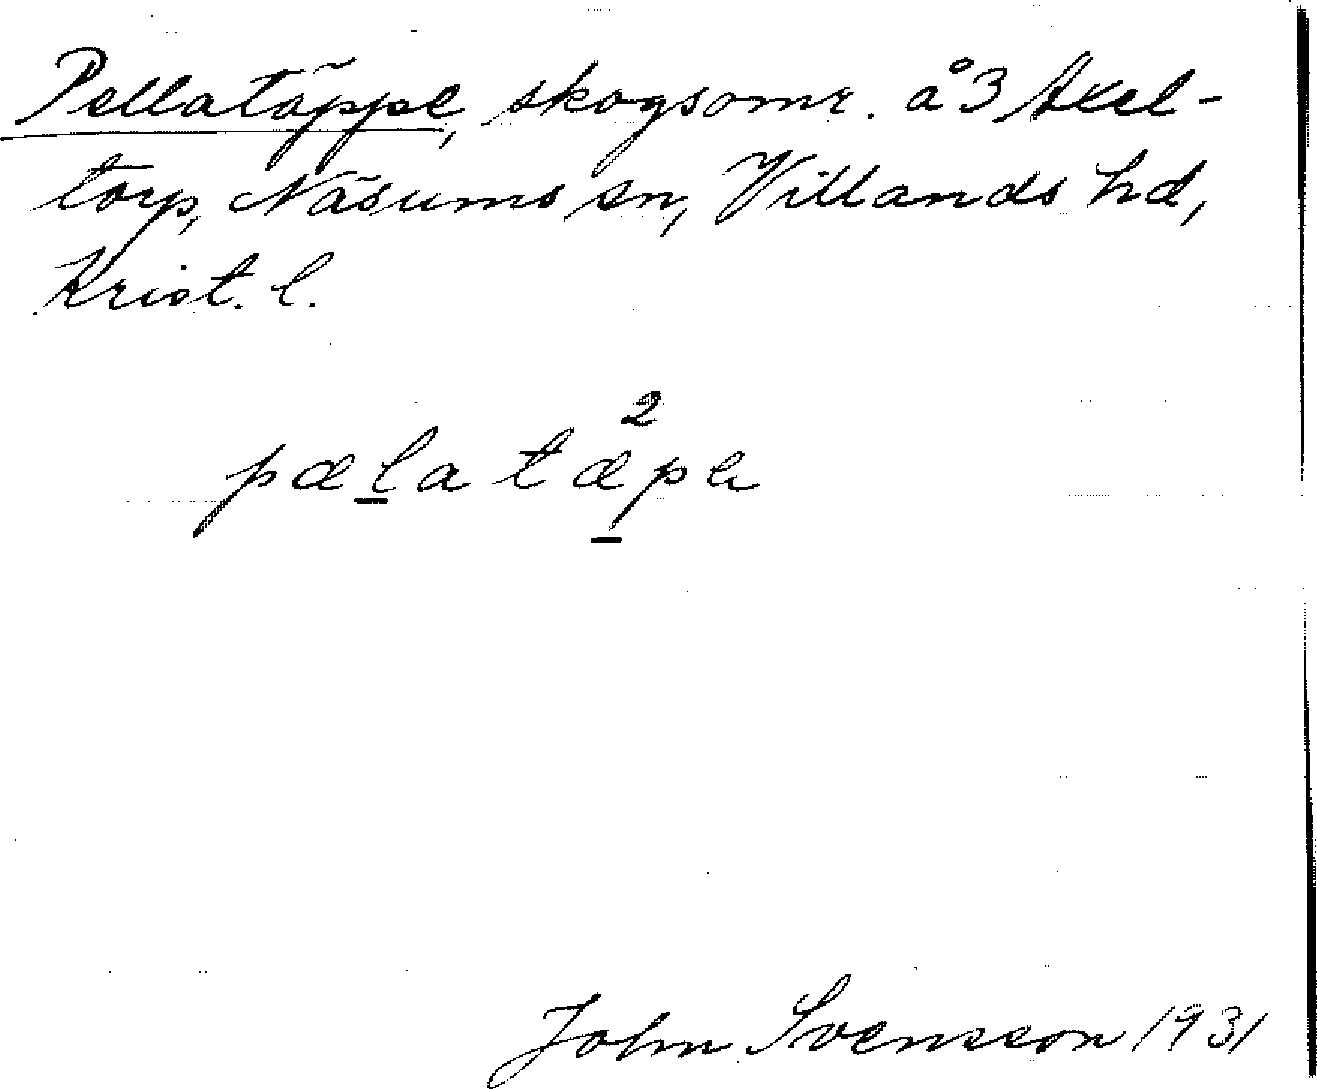 Pellatäppe, skogsomr. å 3 Axel-
torp, Näsums sn, Villands hd,
Krist. l.
2
pælatæpə
John Svensson 1931